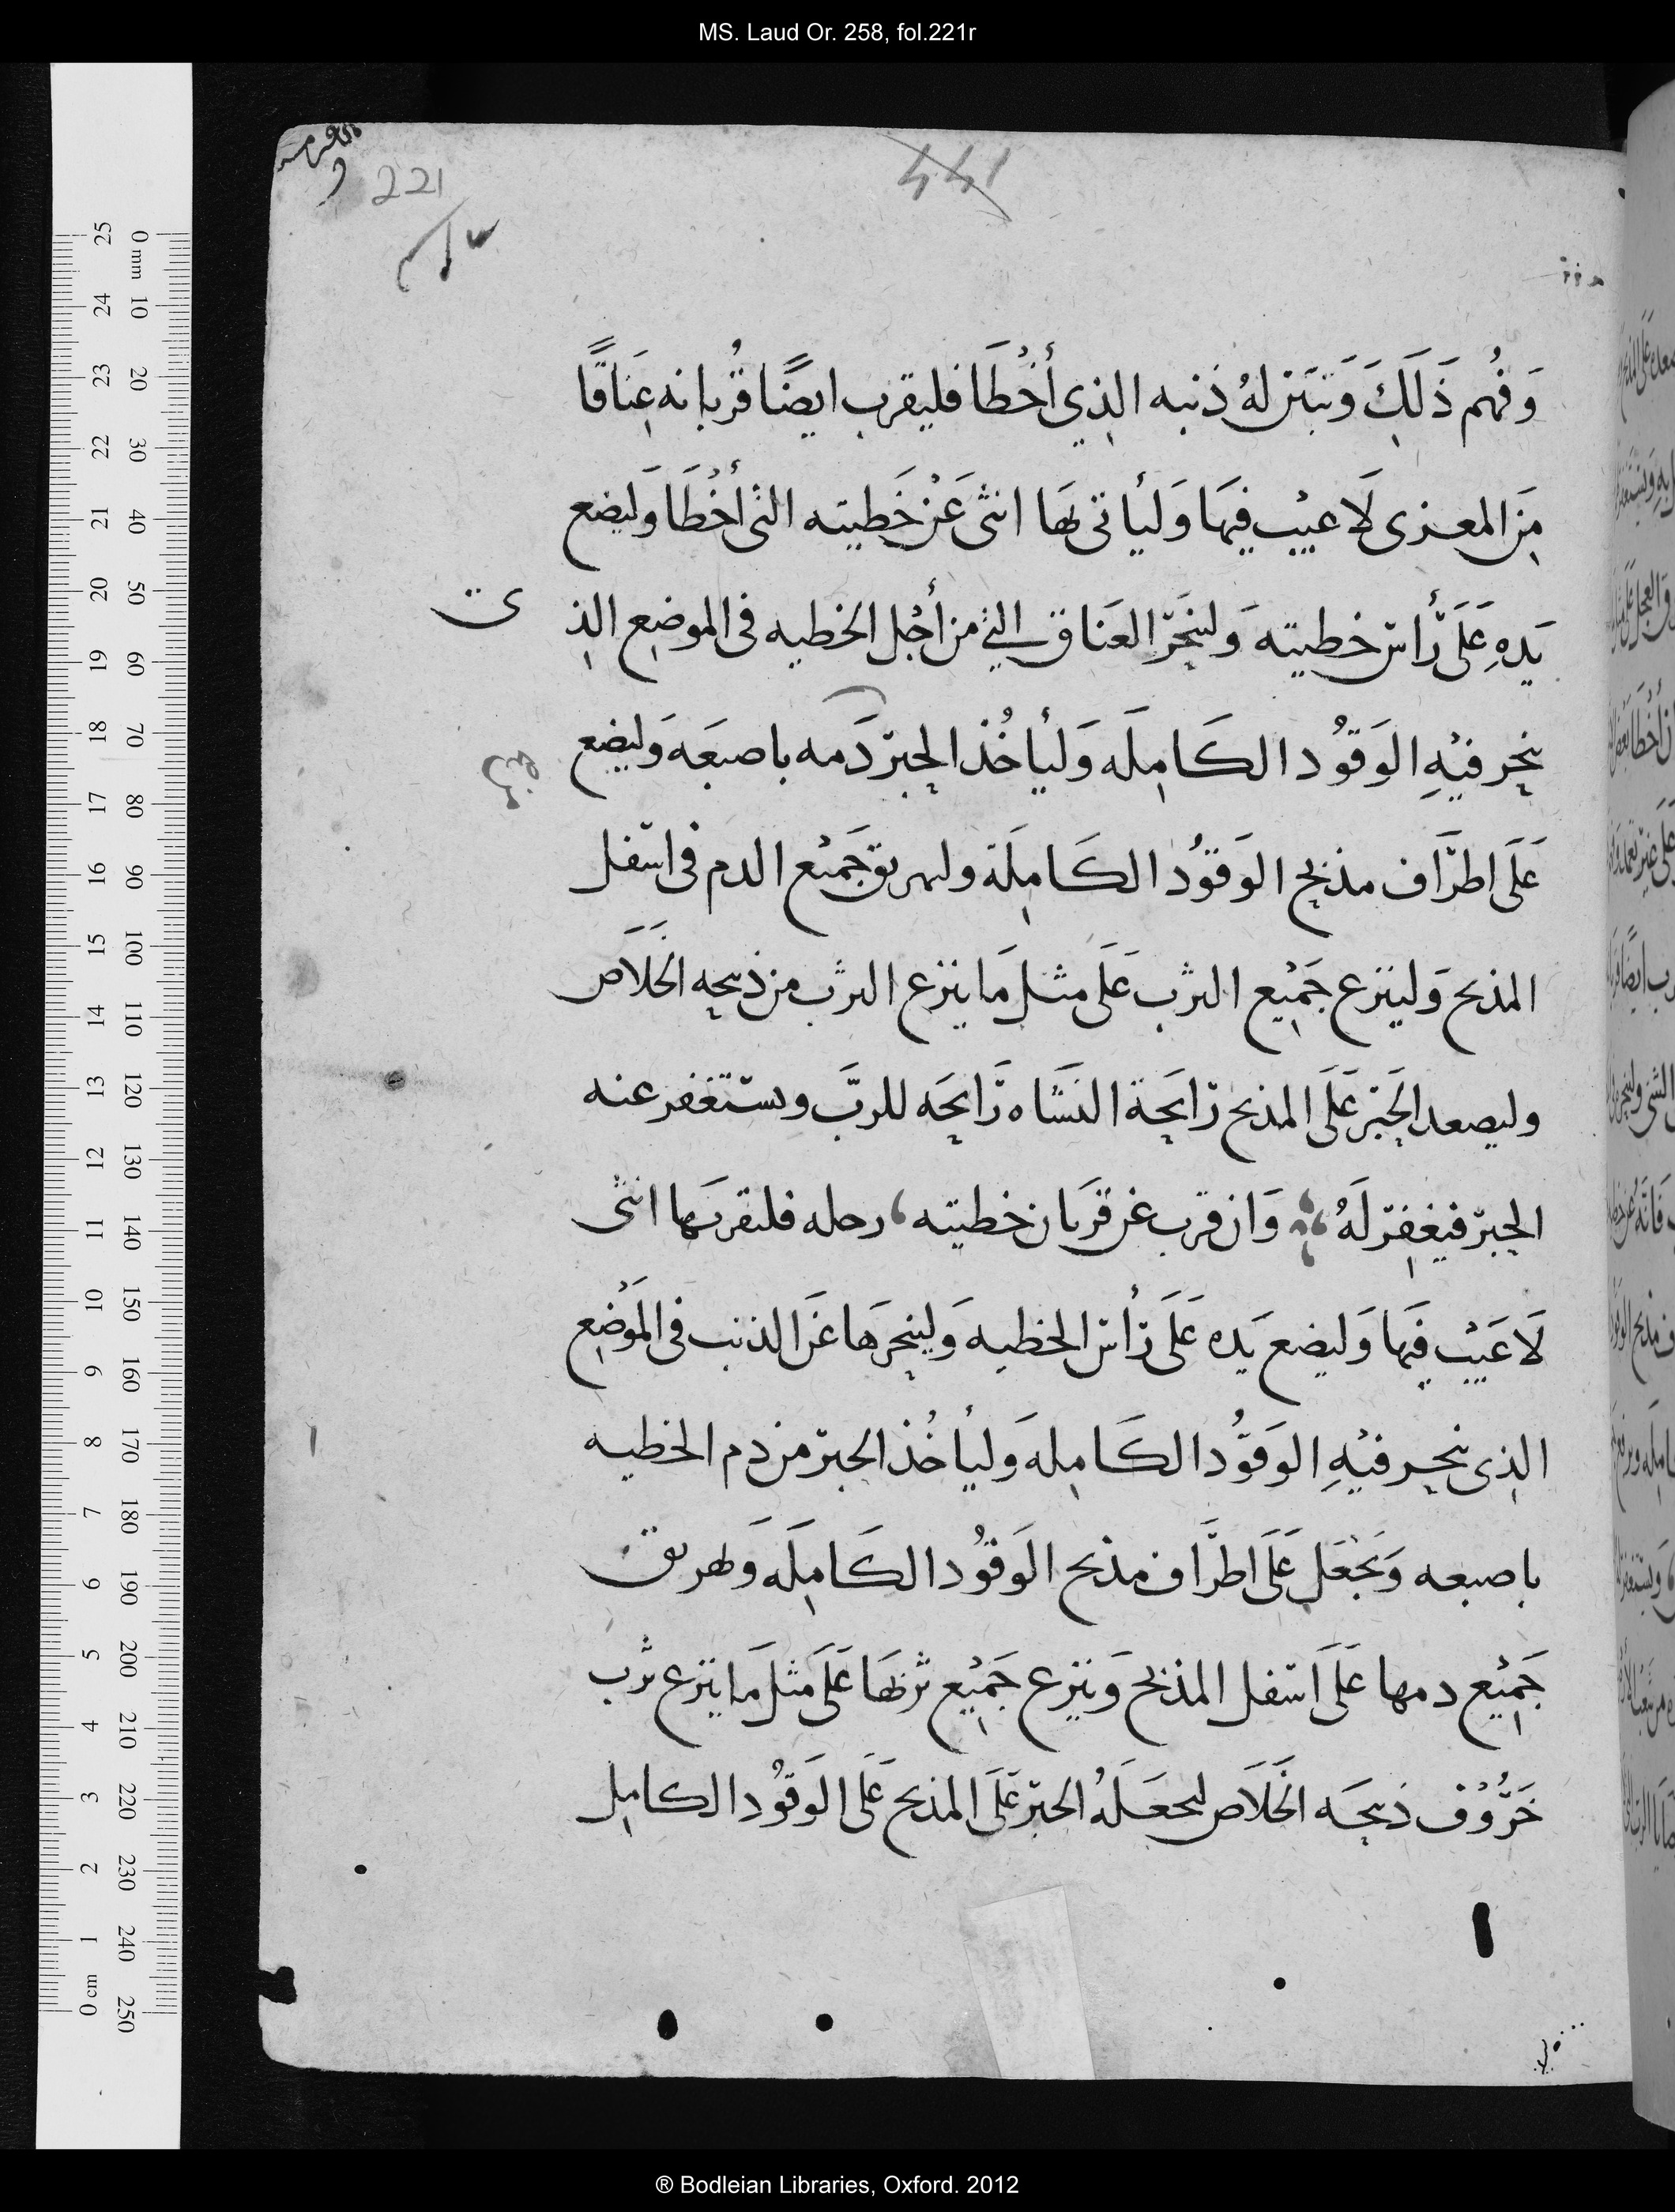 MS. Laud Or. 258, fol.221r
221
وَفُهم ذَلَكَ وَتبَيَن لهُ ذنبه الذِي أَخْطَا فليقرب ايضًا قُربانه عِنَاقًا
مِنَ المعزى لَا عيْب فيِهَا وَليأتى بهَا انثى عَنْ خَطيته التى أخْطَا وَليضع
يَدهِ عَلَى رَأس خطيته وَلينَحَر العَنَاق التي من أجْل الخطيه فى الموضِع الذِ ى
ينحر فيْهِ الوَقوُد الكَامِلَه وَليأخُذ الحِبر دَمه باصبعَه وَليضع
عَلَى اطرَاف مذبح الوَقوُد الكَامِلَة وليهريق جَميْع الدم فى اسفل
المذبح وَلينزع جَمِيْع الثرب عَلَى مثل مَا ينزع الثرب من ذبيحه الخَلَاص
وليصعد الحَبر عَلَى المذبح رَايحَة النشَاه رَايحَه للربَّ ويستغفر عنه
الحِبر فيغفِر لَهُ وَان قرب عن قربَان خطيته رحله فليقربَها انثى
لَا عَيْب فيَها وَليضع يَده عَلَى رَأس الخطيه وَلينحرَها عَن الذنب فى المَوْضِع
الذِى ينحر فيْهِ الوَقوُد الكَامِله وَليأخُذ الحبر من دم الخطيه
باصبعه وَيَجْعَل عَلَى اطرَاف مذبح الوَقوُد الكَامِلَه وَيهريق
جَمِيْع دمها عَلَى اسفل المذبح وَينزع جَمِيْع ثربهَا عَلَى مثل مَا ينزع ثرب
خَرُوْف ذبيحَه الخَلَاص ليجعَلهُ الحبر عَلَى المذبح عَلَى الوَقوُد الكامِل
® Bodleian Libraries, Oxford. 2012